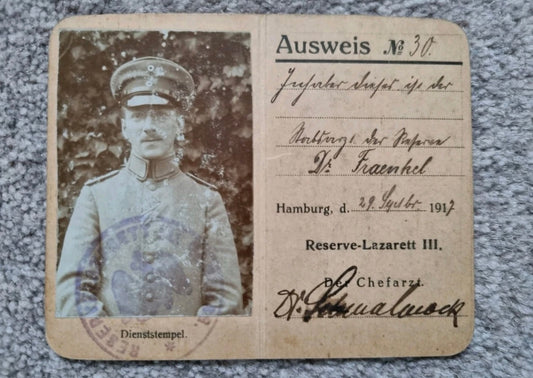 Ausweis № 30.
Inhaber dieses ist der
Stabsarzt der Reserve
Dr. Fraenkel
Hamburg, d. 29. Septbr. 1917
Reserve-Lazarett III.
Der Chefarzt.
Dr.
Dienststempel.